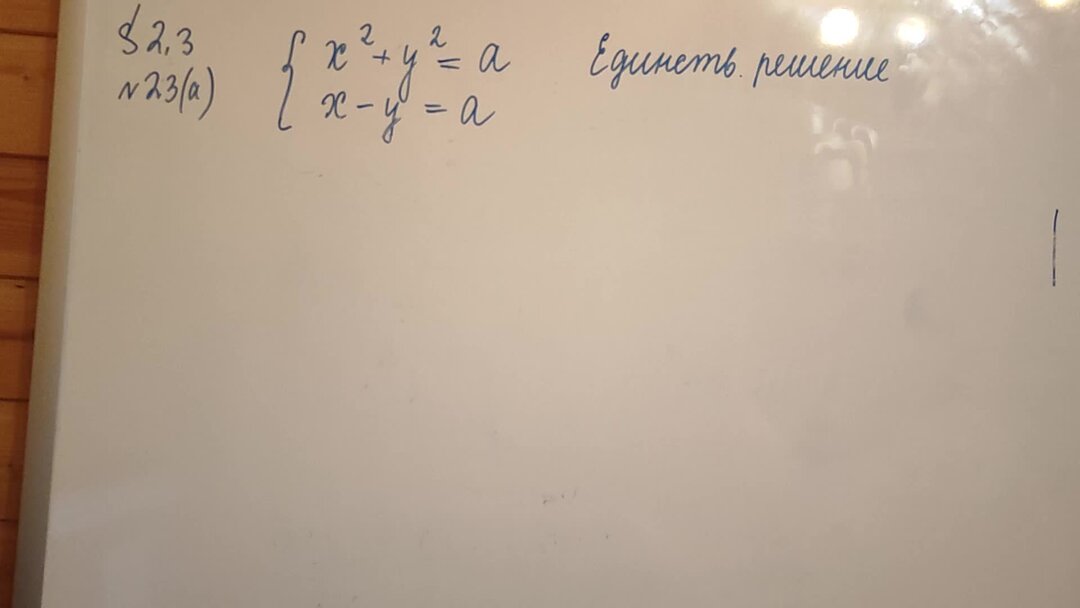 § 2,3
№23(а)
x² + y² = a
x - y = a
Единств. решение